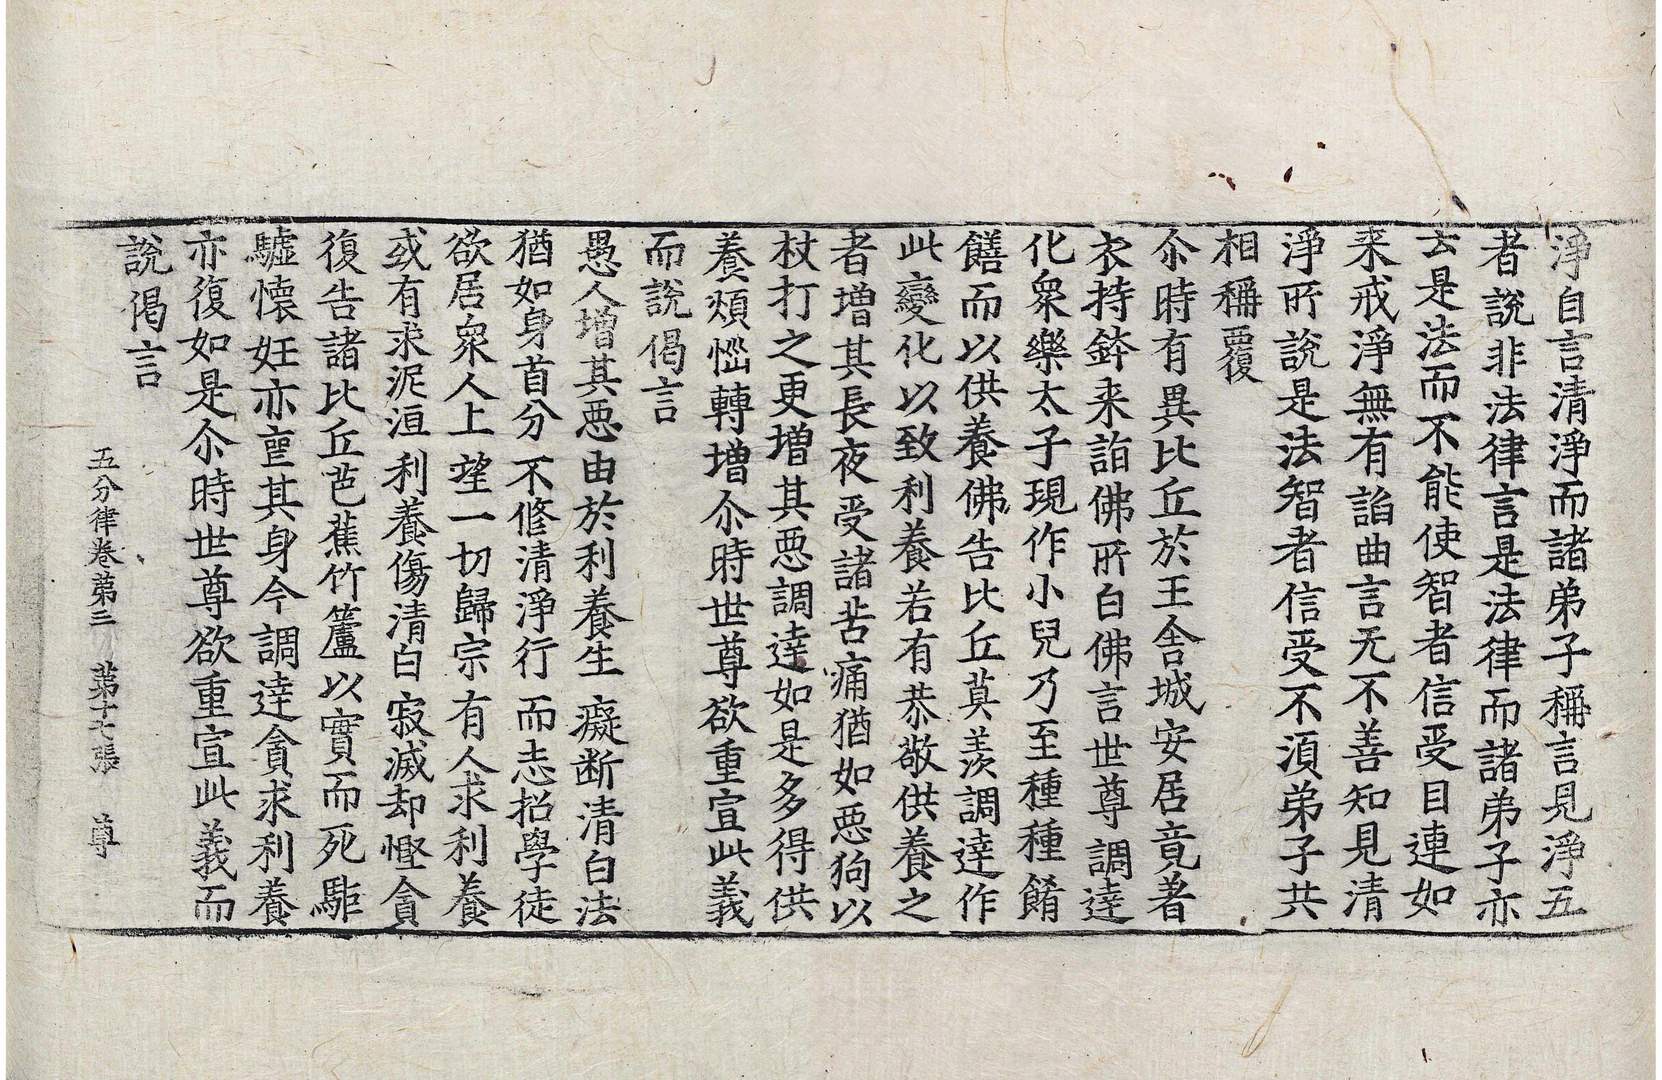 淨自言清淨而諸弟子稱言見淨五
者說非法律言是法律而諸弟子亦
去是法而不能使智者信受目連如
来戒淨無有諂曲言无不善知見清
淨所說是法智者信受不湏弟子共
相稱覆
尒時有異比丘於王舍城安居竟著
衣持鉢来詣佛所白佛言世尊調達
化衆樂太子現作小兒乃至種種餚
饍而以供養佛告比丘莫羡調達作
此變化以致利養若有恭敬供養之
者增其長夜受諸苦痛猶如惡狗以
杖打之更增其惡調達如是多得供
養煩惱轉增尒時世尊欲重宣此義
而說偈言
愚人增其惡由於利養生 癡断清白法
猶如身首分 不修清淨行 而恚招學徒
欲居衆人上 望一切歸宗 有人求利養
或有求泥洹 利養傷清白 寂滅却慳貪
復告諸比丘芭蕉竹籚以實而死駏
驉懷妊亦亡其身今調達貪求利養
亦復如是尒時世尊欲重宣此義而
說偈言
五分律卷第三 第十七張 尊